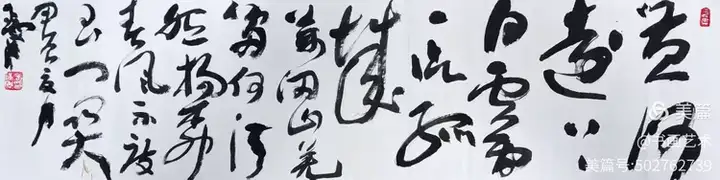 黄河
遠上
白雲間
一片孤
城
萬仞山羌
笛何须
怨楊柳
春风不度
玉门关
美篇
@书画艺术
美篇号:502762739